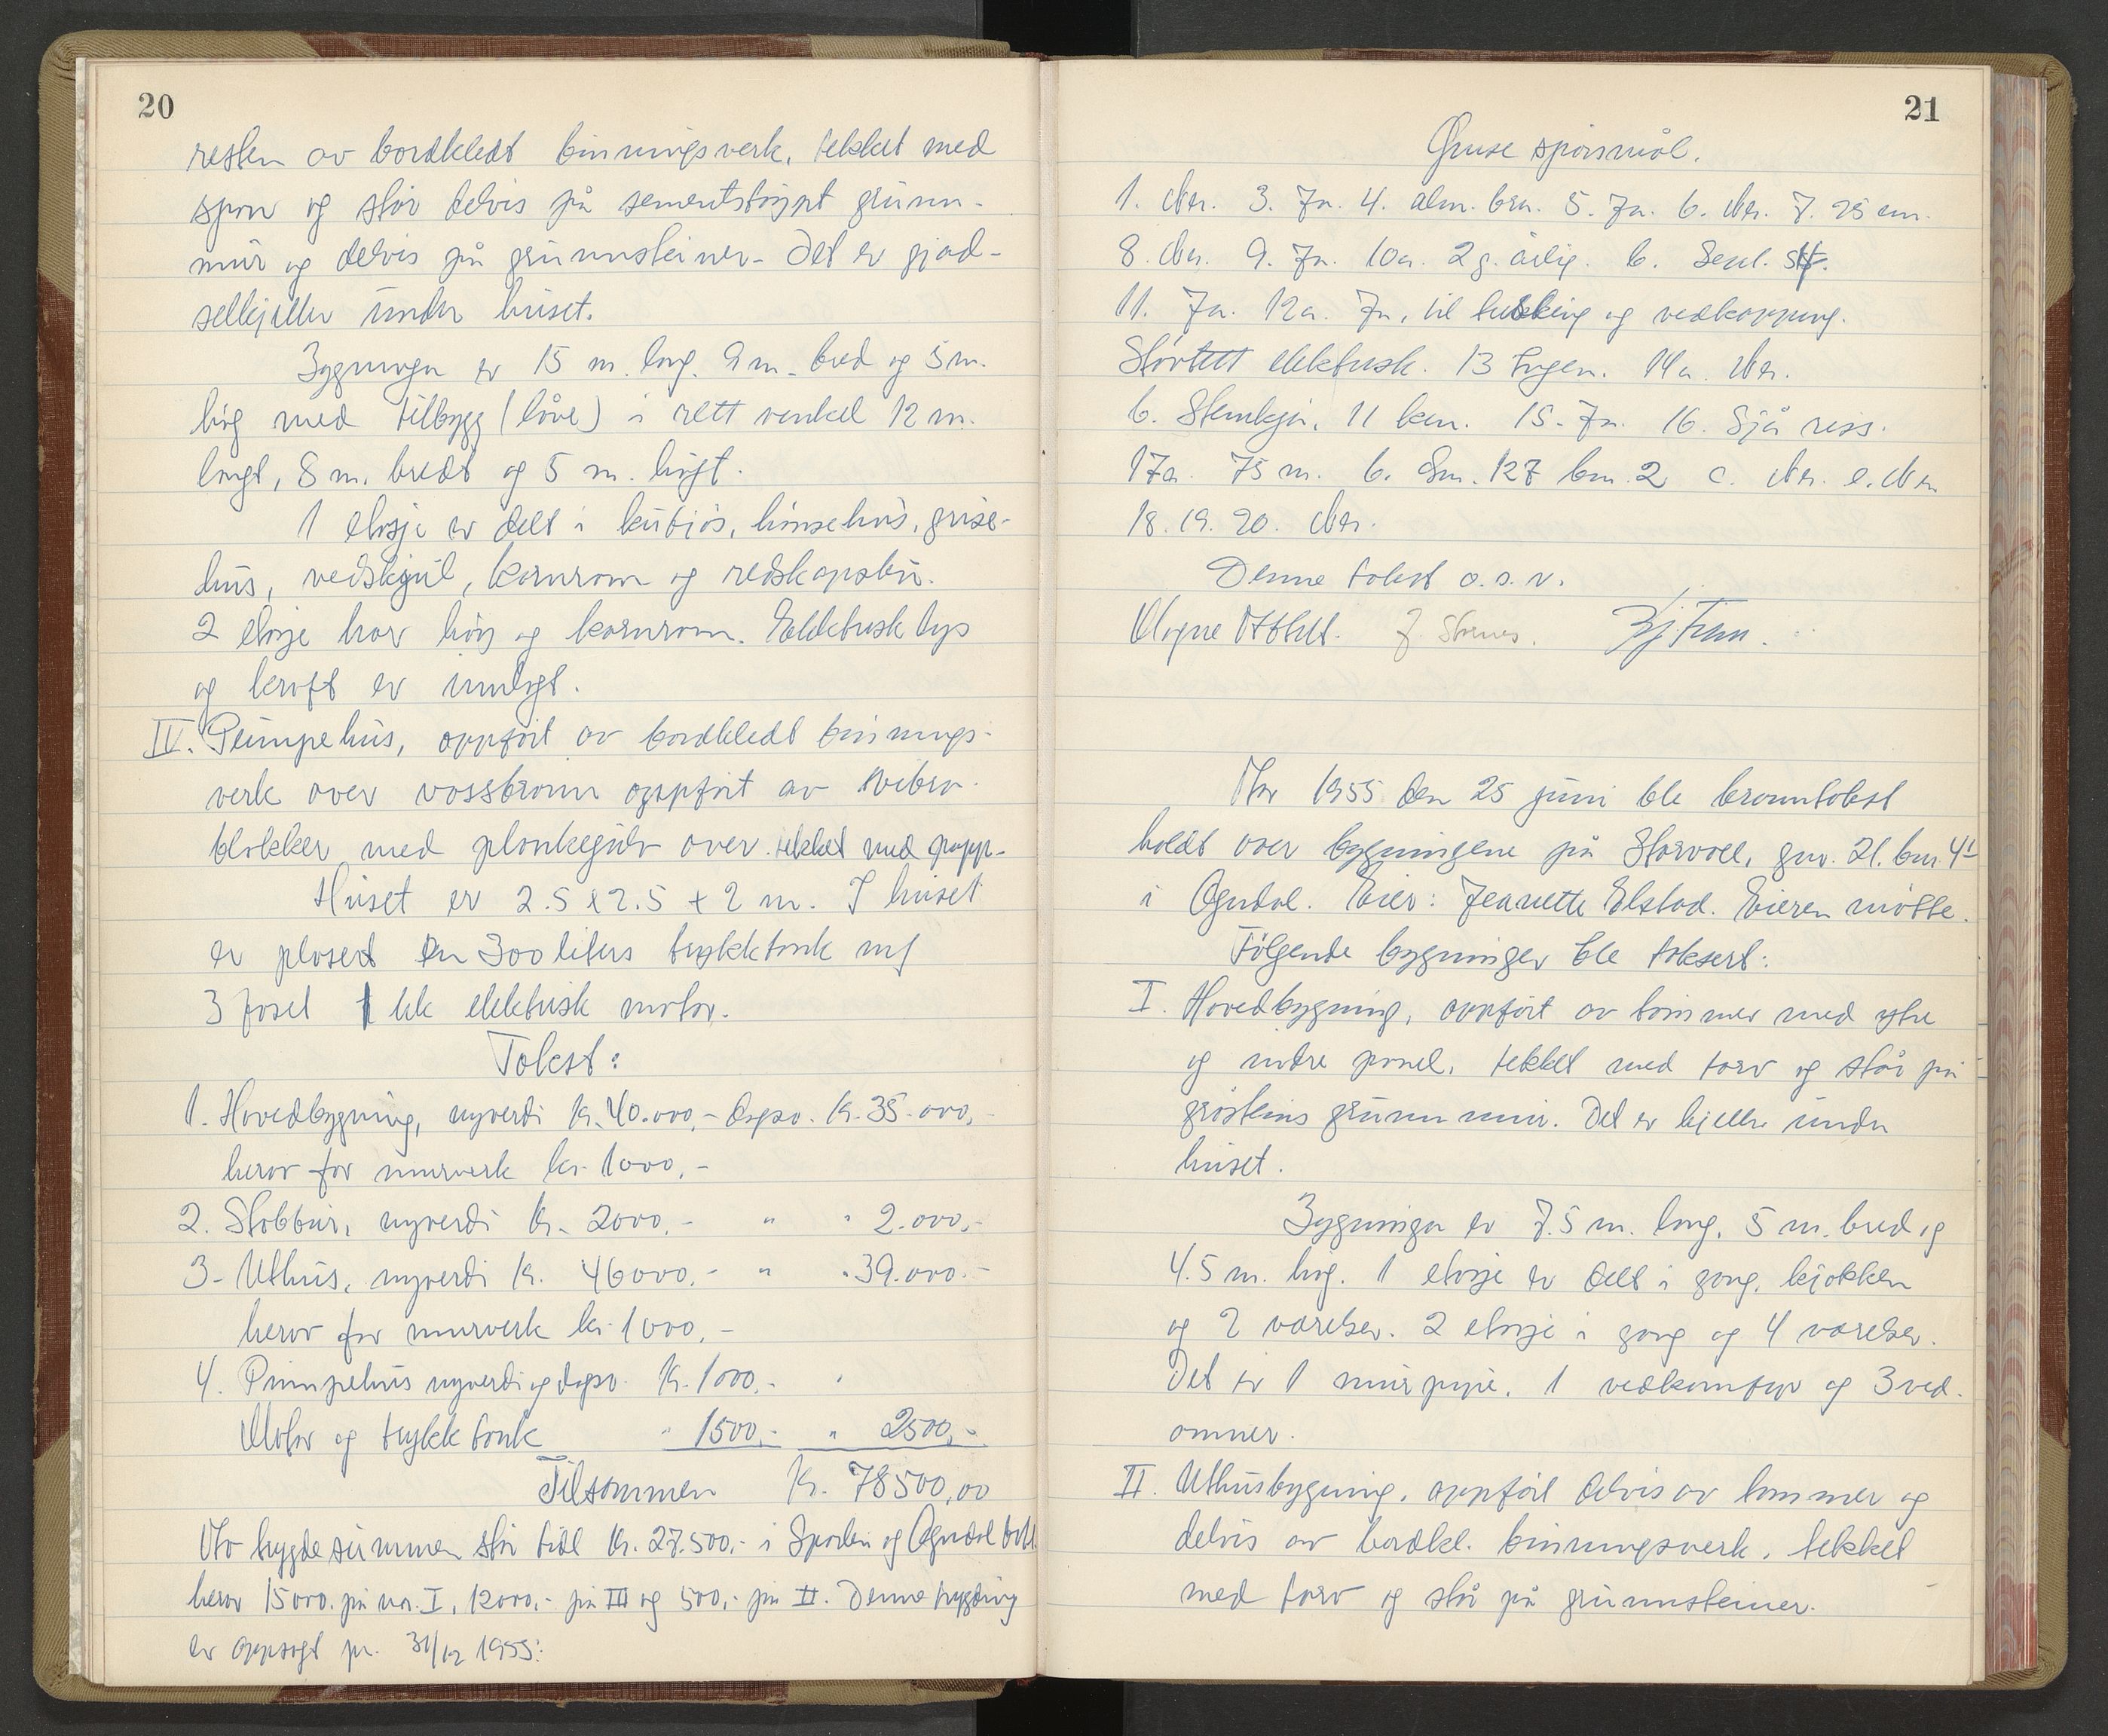 20
resten av bordkledt binningsverk, tekket med
spon og står delvis på sementstøypt grunn-
mur og delvis på grunnsteiner. Det er gjød-
selkjeller under huset.
Bygningen er 15 m. lang, 9 m. bred og 5 m.
høg med tilbygg (låve) i rett vinkel 12 m.
langt, 8 m. bredt og 5 m. høgt.
1 etasje er delt i kufjøs, hønsehus, grise-
hus, vedskjul, kornrom og redskapsbu.
2 etasje har høy og kornrom. Elektrisk lys
og kraft er innlagt.
IV. Pumpehus, oppført av bordkledt binnings-
verk over vassbrønn oppført av vibro-
blokker med plankegulv over. tekket med papp-
Huset er 2.5 x 2.5 + 2 m. I huset
er plasert en 300 liters trykktank m/
3 faset 1 hk elektrisk motor.
Takst:
1. Hovedbygning, nyverdi kr. 40.000,- dagsv. kr. 35.000,-
herav for murverk kr. 1000,-
2. Stabbur, nyverdi kr. 2000,- " " 2.000,-
3. Uthus, nyverdi kr. 46000,- " " 39.000.-
herav for murverk kr. 1000,-
4. Pumpehus nyverdi og dagsv. kr. 1000,- "
Motor og trykktank " 1500,- " 2500,-
Tilsammen kr. 78500,00
Av trygdesummen står kr. 27.500,- i Sparbu og Ogndal
herav 15000. på nr. I, 12000,- på III og 500,- på II. Denne trygding
er oppsagt pr. 31/12 1955:
21
Øvrige spørsmål.
1. Nei. 3. Ja. 4. alm. bra. 5. Ja. 6. Nei. 7. 25 cm.
8. Nei. 9. Ja. 10a. 2 g. årlig. b.
11. Ja. 12a. Ja, til tresking og vedkapping.
Størtett elektrisk. 13 Ingen. 14a. Nei.
b. Steinkjer, 11 km. 15. Ja. 16. Sjå riss.
17a. 75 m. b. Gnr. 127 bnr. 2 c. Nei. e. Nei
18. 19. 20. Nei.
Denne takst o.s.v.
Magne J. Stornes.
År 1955 den 25 juni ble branntakst
holdt over bygningene på Storvoll, gnr. 21. bnr. 41
i Ogndal. Eier: Jeanette Elstad. Eieren møtte.
Følgende bygninger ble taksert:
I. Hovedbygning, oppført av tømmer med ytre
og indre panel, tekket med torv og står på
gråsteins grunnmur. Det er kjeller under
huset.
Bygningen er 7.5 m. lang, 5 m. bred og
4.5 m. høg. 1 etasje er delt i gang, kjøkken
og 2 værelser. 2 etasje i gang og 4 værelser.
Det er 1 murpipe, 1 vedkomfyr og 3 ved-
omner.
II. Uthusbygning, oppført delvis av tømmer og
delvis av bordkl. binningsverk, tekket
med torv og står på grunnsteiner.